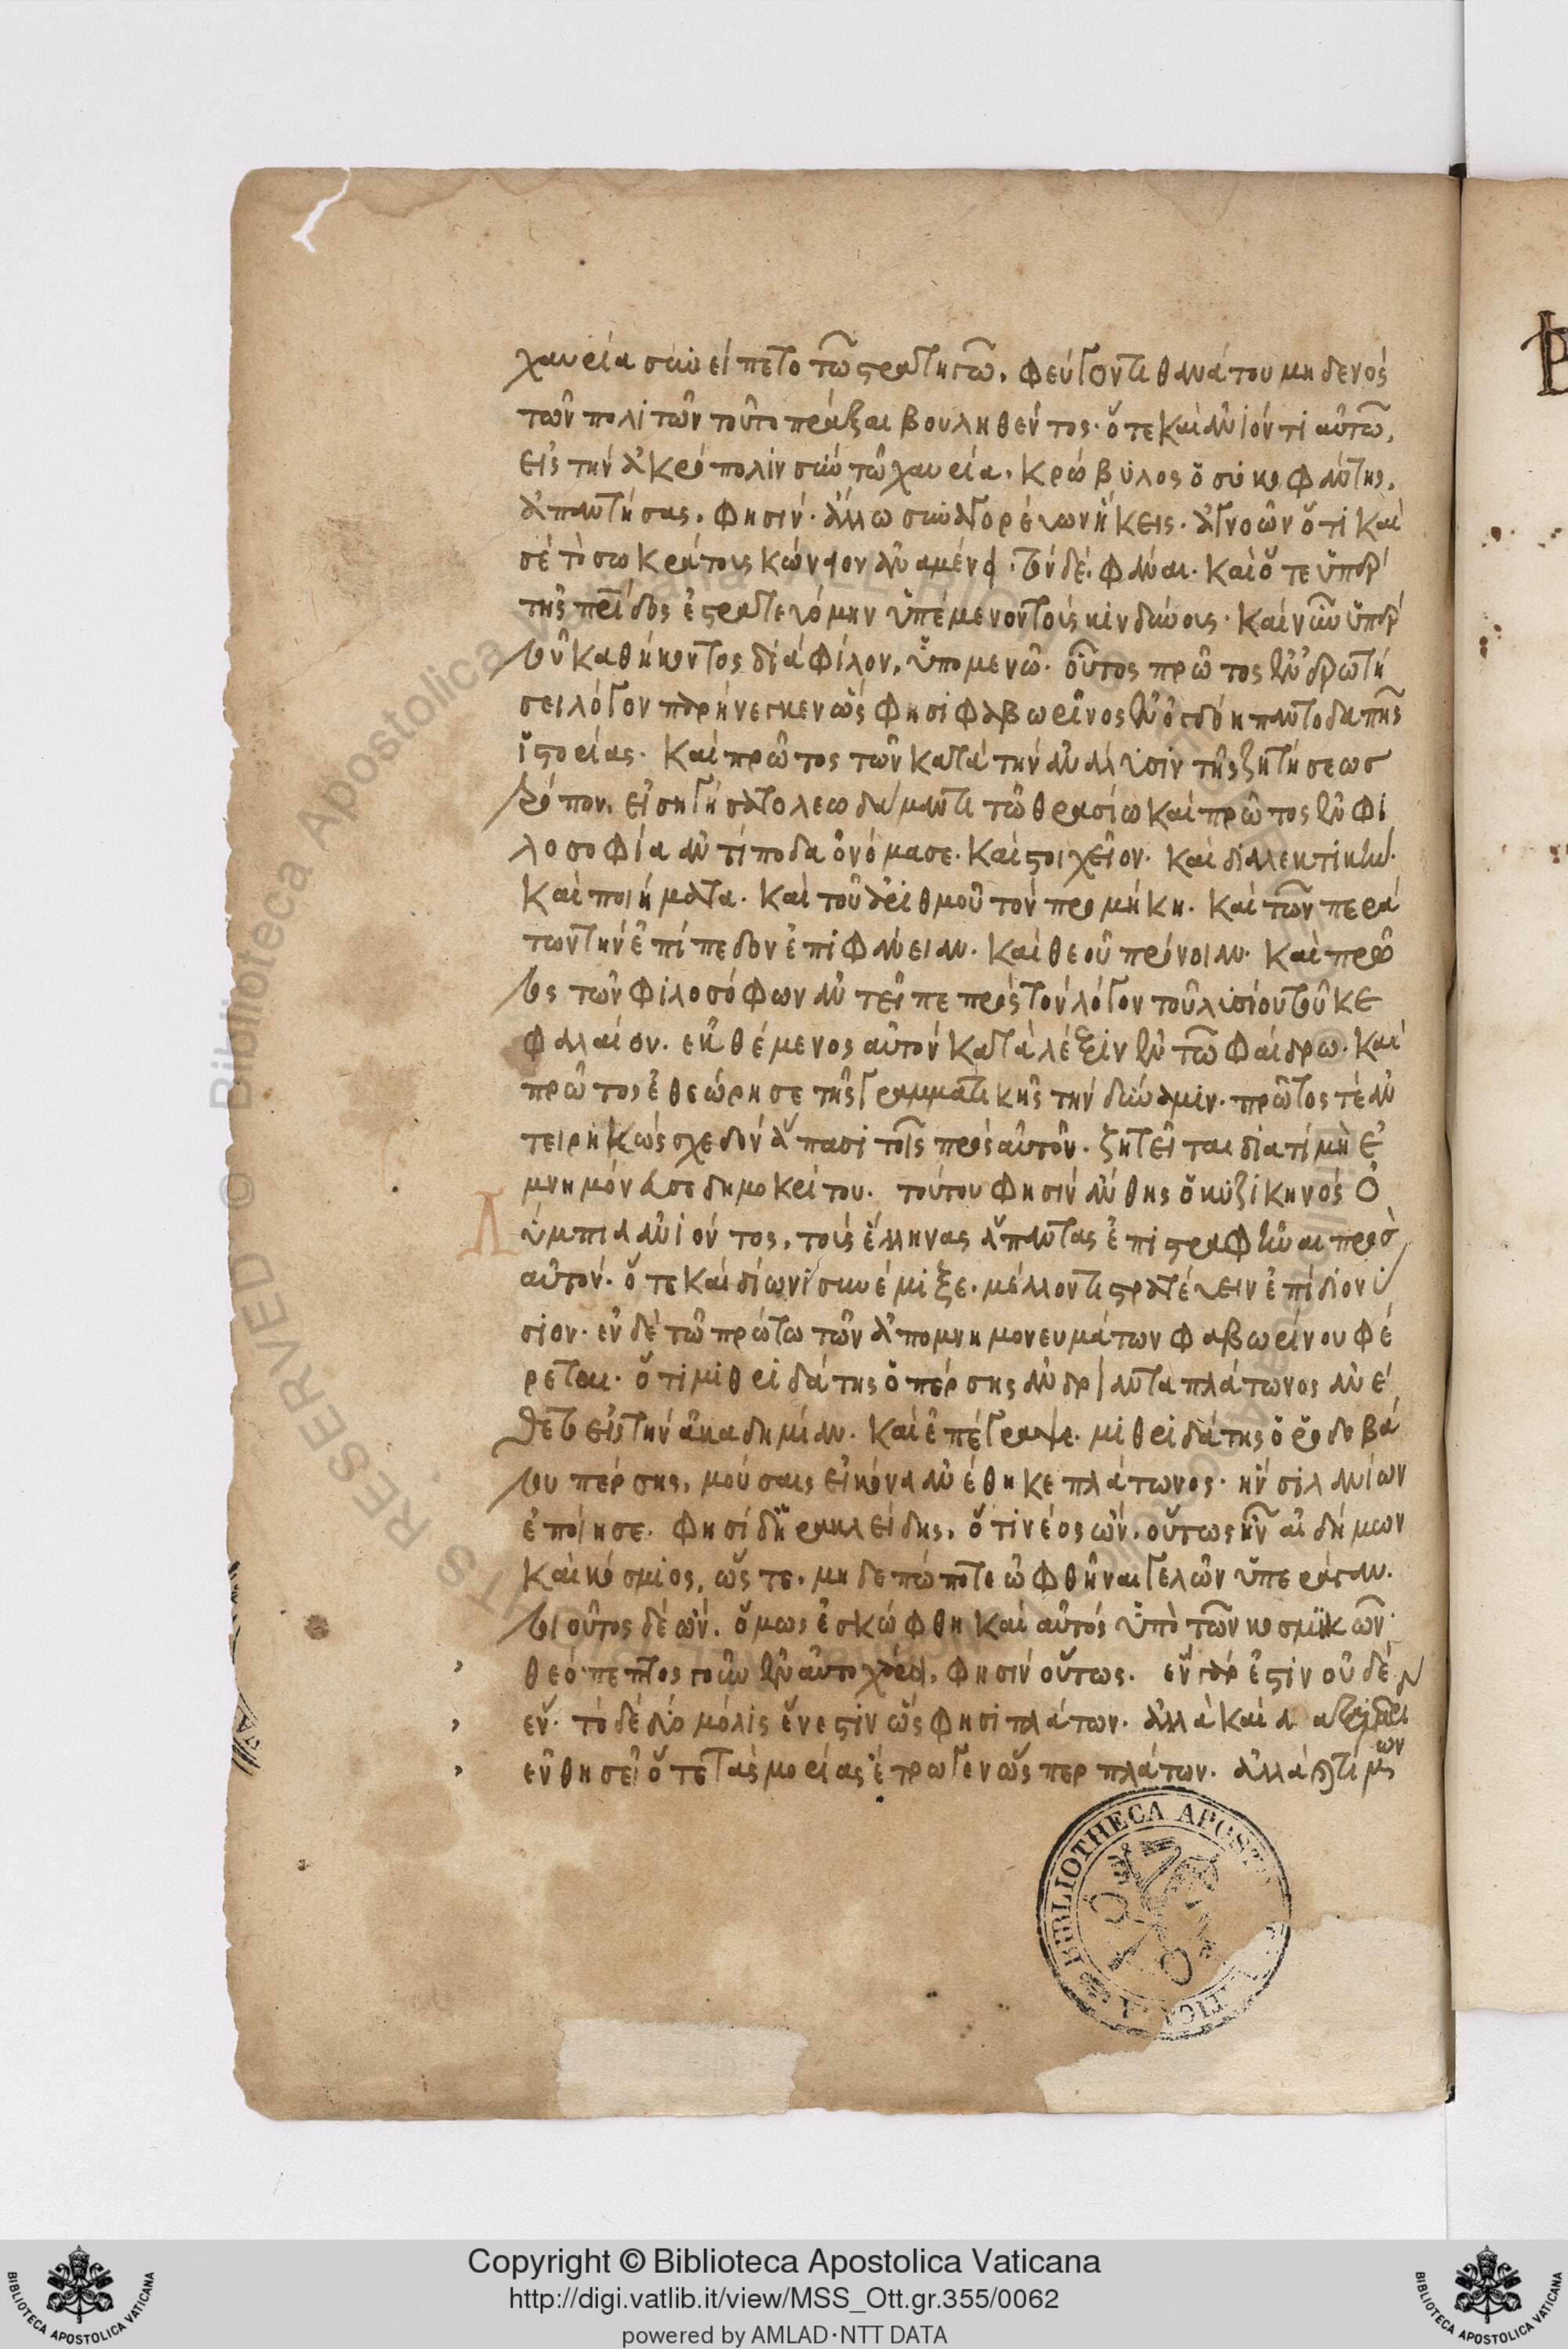 χαυρία συνείπετο τῶ στρατηγῶ, φεύγοντι θανάτου μηδενὸς
τῶν πολιτῶν τοῦτο πράξαι βουληθέντος· ὅτε καὶ ἀνιόντι αὐτῶ,
εἰς τὴν ἀκρόπολιν σὺν τῶ χαυρία, κρώβυλος ὁ συκοφάντης,
ἀπαντήσας, φησίν· ἄλλω συναγορεύων ἥκεις· ἀγνοῶν ὅτι καὶ
σὲ τὸ σωκράτους κώνιον ἀναμένει· τὸν δὲ, φάναι· καὶ ὅτε ὑπὲρ
τῆς πρίδος ἐστρατευόμην ὑπέμενον τοὺς κινδύνους· καὶ νῦν ὑπὲρ
τοῦ καθήκοντος διὰ φίλον, ὑπομενῶ· οὗτος πρῶτος ἐν ἐρωτή
σει λόγον παρήνεγκεν ὥς φησι φαβωρῖνος ἐν ὀγδόη παντοδαπῆς
ἱστορίας· καὶ πρῶτος τῶν κατὰ τὴν ἀνάλυσιν τῆς ζητήσεως
τρόπον, εἰσηγήσατο λεωδάμαντι τῶ θρασίω καὶ πρῶτος ἐν φι
λοσοφία ἀντίποδα ὀνόμασε· καὶ στοιχεῖον· καὶ διαλεκτικὴν·
καὶ ποιήματα· καὶ τοῦ ἀριθμοῦ τὸν προμήκη· καὶ τῶν περά
των τὴν ἐπίπεδον ἐπιφάνειαν· καὶ θεοῦ πρόνοιαν· καὶ πρῶ
τος τῶν φιλοσόφων ἀντεῖπε πρὸς τὸν λόγον τοῦ λυσίου τοῦ κε
φαλαίου· ἐκθέμενος αὐτὸν κατὰ λέξιν ἐν τῶ φαίδρω· καὶ
πρῶτος ἐθεώρησε τῆς γραμματικῆς τὴν δύναμιν· πρῶτος τὲ ἀν
τειρηκὼς σχεδὸν ἅπασι τοῖς πρὸ αὐτοῦ· ζητεῖται διατί μὴ ἐ
μνημόνευσε δημοκρίτου· τούτου φησὶν ἀνθης ὁ κυζικηνὸς Ὀ
λύμπια ἀνιόντος, τοὺς ἕλληνας ἅπαντας ἐπιστραφῆναι πρὸς
αὐτόν· ὅτε καὶ δίωνι συνέμιξε· μέλλοντι στρατεύειν ἐπὶ διονύ
σιον· ἐν δὲ τῶ πρώτω τῶν ἀπομνημονευμάτων φαβωρίνου φέ
ρεται· ὅτι μιθριδάτης ὁ πέρσης ἀνδριάντα πλάτωνος ἀνέ
θετο εἰς τὴν ἀκαδημίαν· καὶ ἐπέγραψε· μιθριδάτης ὁ ῥοδοβά
του πέρσης, μούσαις εἰκόνα ἀνέθηκε πλάτωνος· ἣν σιλανίων
ἐποίησε· φησὶ δ' ἡρακλείδης, ὅτι νέος ὢν, οὕτως ἦν αἰδήμων
καὶ κόσμιος, ὥς τε, μηδεπώποτε ὠφθῆναι γελῶν ὑπεράγαν·
τοιοῦτος δὲ ὢν, ὅμως ἐσκώφθη καὶ αὐτὸς ὑπὸ τῶν κωσμικῶν·
θεόπεμπτος γοῦν ἐν αὐτοχάρει, φησὶν οὕτως· ἓν γάρ ἐστιν οὐδὲ
ἕν· τὸ δὲ δύο μόλις ἕν ἐστιν ὥς φησι πλάτων· ἀλλὰ καὶ
ἐν θησεῖ ὅτε τὰς μορίας ἔτρωγεν ὥσπερ πλάτων· ἀλλὰ
BIBLIOTHECA APOST
Copyright © Biblioteca Apostolica Vaticana
http://digi.vatlib.it/view/MSS_Ott.gr.355/0062
powered by AMLAD·NTT DATA